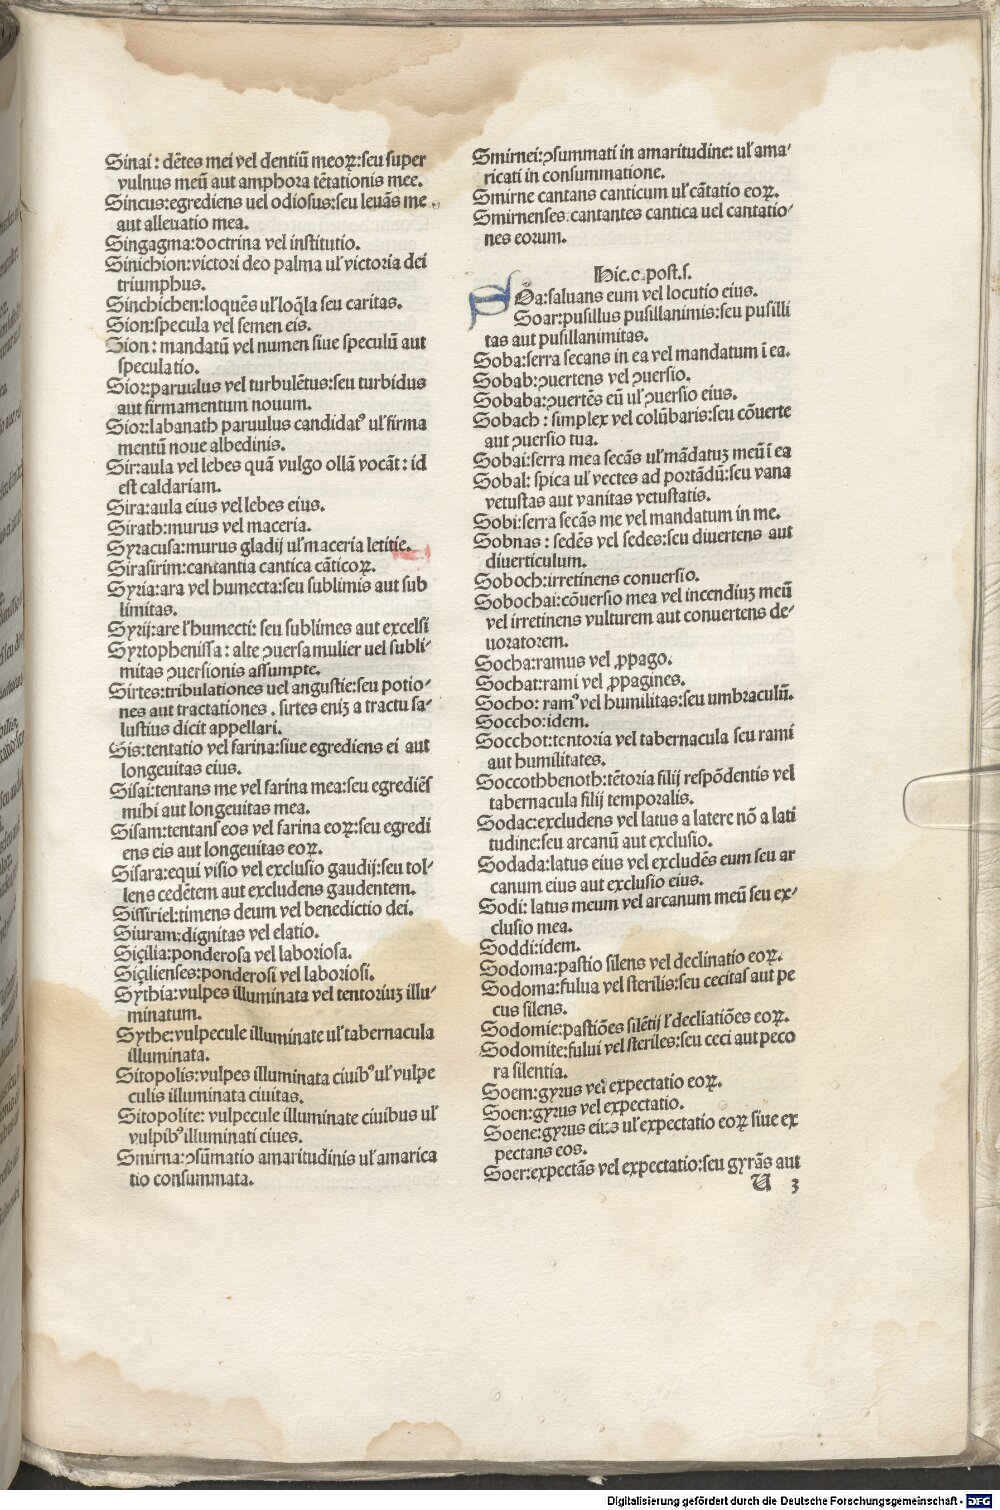 Sinai: dētes mei vel dentiū meoꝝ: seu super
vulnus meū aut amphora tētationis mee.
Sincus: egrediens uel odiosus: seu leuās me
aut alleuatio mea.
Singagma: doctrina vel institutio.
Sinichion: victori deo palma uł victoria dei
triumphus.
Sinchichen: loquēs uł loq̄la seu caritas.
Sion: specula vel semen eis.
Sion: mandatū vel numen siue speculū aut
speculatio.
Sior: paruulus vel turbulētus: seu turbidus
aut firmamentum nouum.
Sior: labanath paruulus candidatꝰ uł firma
mentū noue albedinis.
Sir: aula vel lebes quā vulgo ollā vocāt: id
est caldariam.
Sira: aula eius vel lebes eius.
Sirath: murus vel maceria.
Syracusa: murus gladij uł maceria letitie.
Sirasirim: cantantia cantica cāticoꝝ.
Syria: ara vel humecta: seu sublimis aut sub
limitas.
Syrij: are ł humecti: seu sublimes aut excelsi
Syrtophenissa: alte ꝯuersa mulier uel subli-
mitas ꝯuersionis assumpte.
Sirtes: tribulationes uel angustie: seu potio-
nes aut tractationes. sirtes eniȝ a tractu sa-
lustius dicit appellari.
Sis: tentatio vel farina: siue egrediens ei aut
longeuitas eius.
Sisai: tentans me vel farina mea: seu egrediēs
mihi aut longeuitas mea.
Sisam: tentans eos vel farina eoꝝ: seu egredi
ens eis aut longeuitas eoꝝ.
Sisara: equi visio vel exclusio gaudij: seu tol-
lens cedētem aut excludens gaudentem.
Sissiriel: timens deum vel benedictio dei.
Siuram: dignitas vel elatio.
Sicilia: ponderosa vel laboriosa.
Sicilienses: ponderosi vel laboriosi.
Sythia: vulpes illuminata vel tentoriuȝ illu-
minatum.
Sythe: vulpecule illuminate uł tabernacula
illuminata.
Sitopolis: vulpes illuminata ciuibꝰ uł vulpe
culis illuminata ciuitas.
Sitopolite: vulpecule illuminate ciuibus uł
vulpibꝰ illuminati ciues.
Smirna: ꝯsūmatio amaritudinis uł amarica
tio consummata.
Smirnei: ꝯsummati in amaritudine: uł ama-
ricati in consummatione.
Smirne cantans canticum uł cātatio eoꝝ.
Smirnenses. cantantes cantica uel cantatio-
nes eorum.
Hic. c. post. s.
SOa: saluans eum vel locutio eius.
Soar: pusillus pusillanimis: seu pusilli
tas aut pusillanimitas.
Soba: serra secans in ea vel mandatum ī ea.
Sobab: ꝯuertens vel ꝯuersio.
Sobaba: ꝯuertēs eū uł ꝯuersio eius.
Sobach: simplex vel colūbaris: seu cōuerte
aut ꝯuersio tua.
Sobai: serra mea secās uł mādatuȝ meū ī ea
Sobal: spica uł vectes ad portādū: seu vana
vetustas aut vanitas vetustatis.
Sobi: serra secās me vel mandatum in me.
Sobnas: sedēs vel sedes: seu diuertens aut
diuerticulum.
Soboch: irretinens conuersio.
Sobochai: cōuersio mea vel incendiuȝ meū
vel irretinens vulturem aut conuertens de-
uoratorem.
Socha: ramus vel ꝓpago.
Sochat: rami vel ꝓpagines.
Socho: ramꝰ vel humilitas: seu umbraculū.
Soccho: idem.
Socchot: tentoria vel tabernacula seu rami
aut humilitates.
Soccothbenoth: tētoria filij respōdentis vel
tabernacula filij temporalis.
Sodac: excludens vel latus a latere nō a lati
tudine: seu arcanū aut exclusio.
Sodada: latus eius vel excludēs eum seu ar
canum eius aut exclusio eius.
Sodi: latus meum vel arcanum meū seu ex-
clusio mea.
Soddi: idem.
Sodoma: pastio silens vel declinatio eoꝝ.
Sodoma: fulua vel sterilis: seu cecitas aut pe
cus silens.
Sodomie: pastiōes silētij ł decliatiōes eoꝝ.
Sodomite: fului vel steriles: seu ceci aut peco
ra silentia.
Soem: gyrus vel expectatio eoꝝ.
Soen: gyrus vel expectatio.
Soene: gyrus eius uł expectatio eoꝝ siue ex
pectans eos.
Soer: expectās vel expectatio: seu gyrās aut
U 3
Digitalisierung gefördert durch die Deutsche Forschungsgemeinschaft - DFG